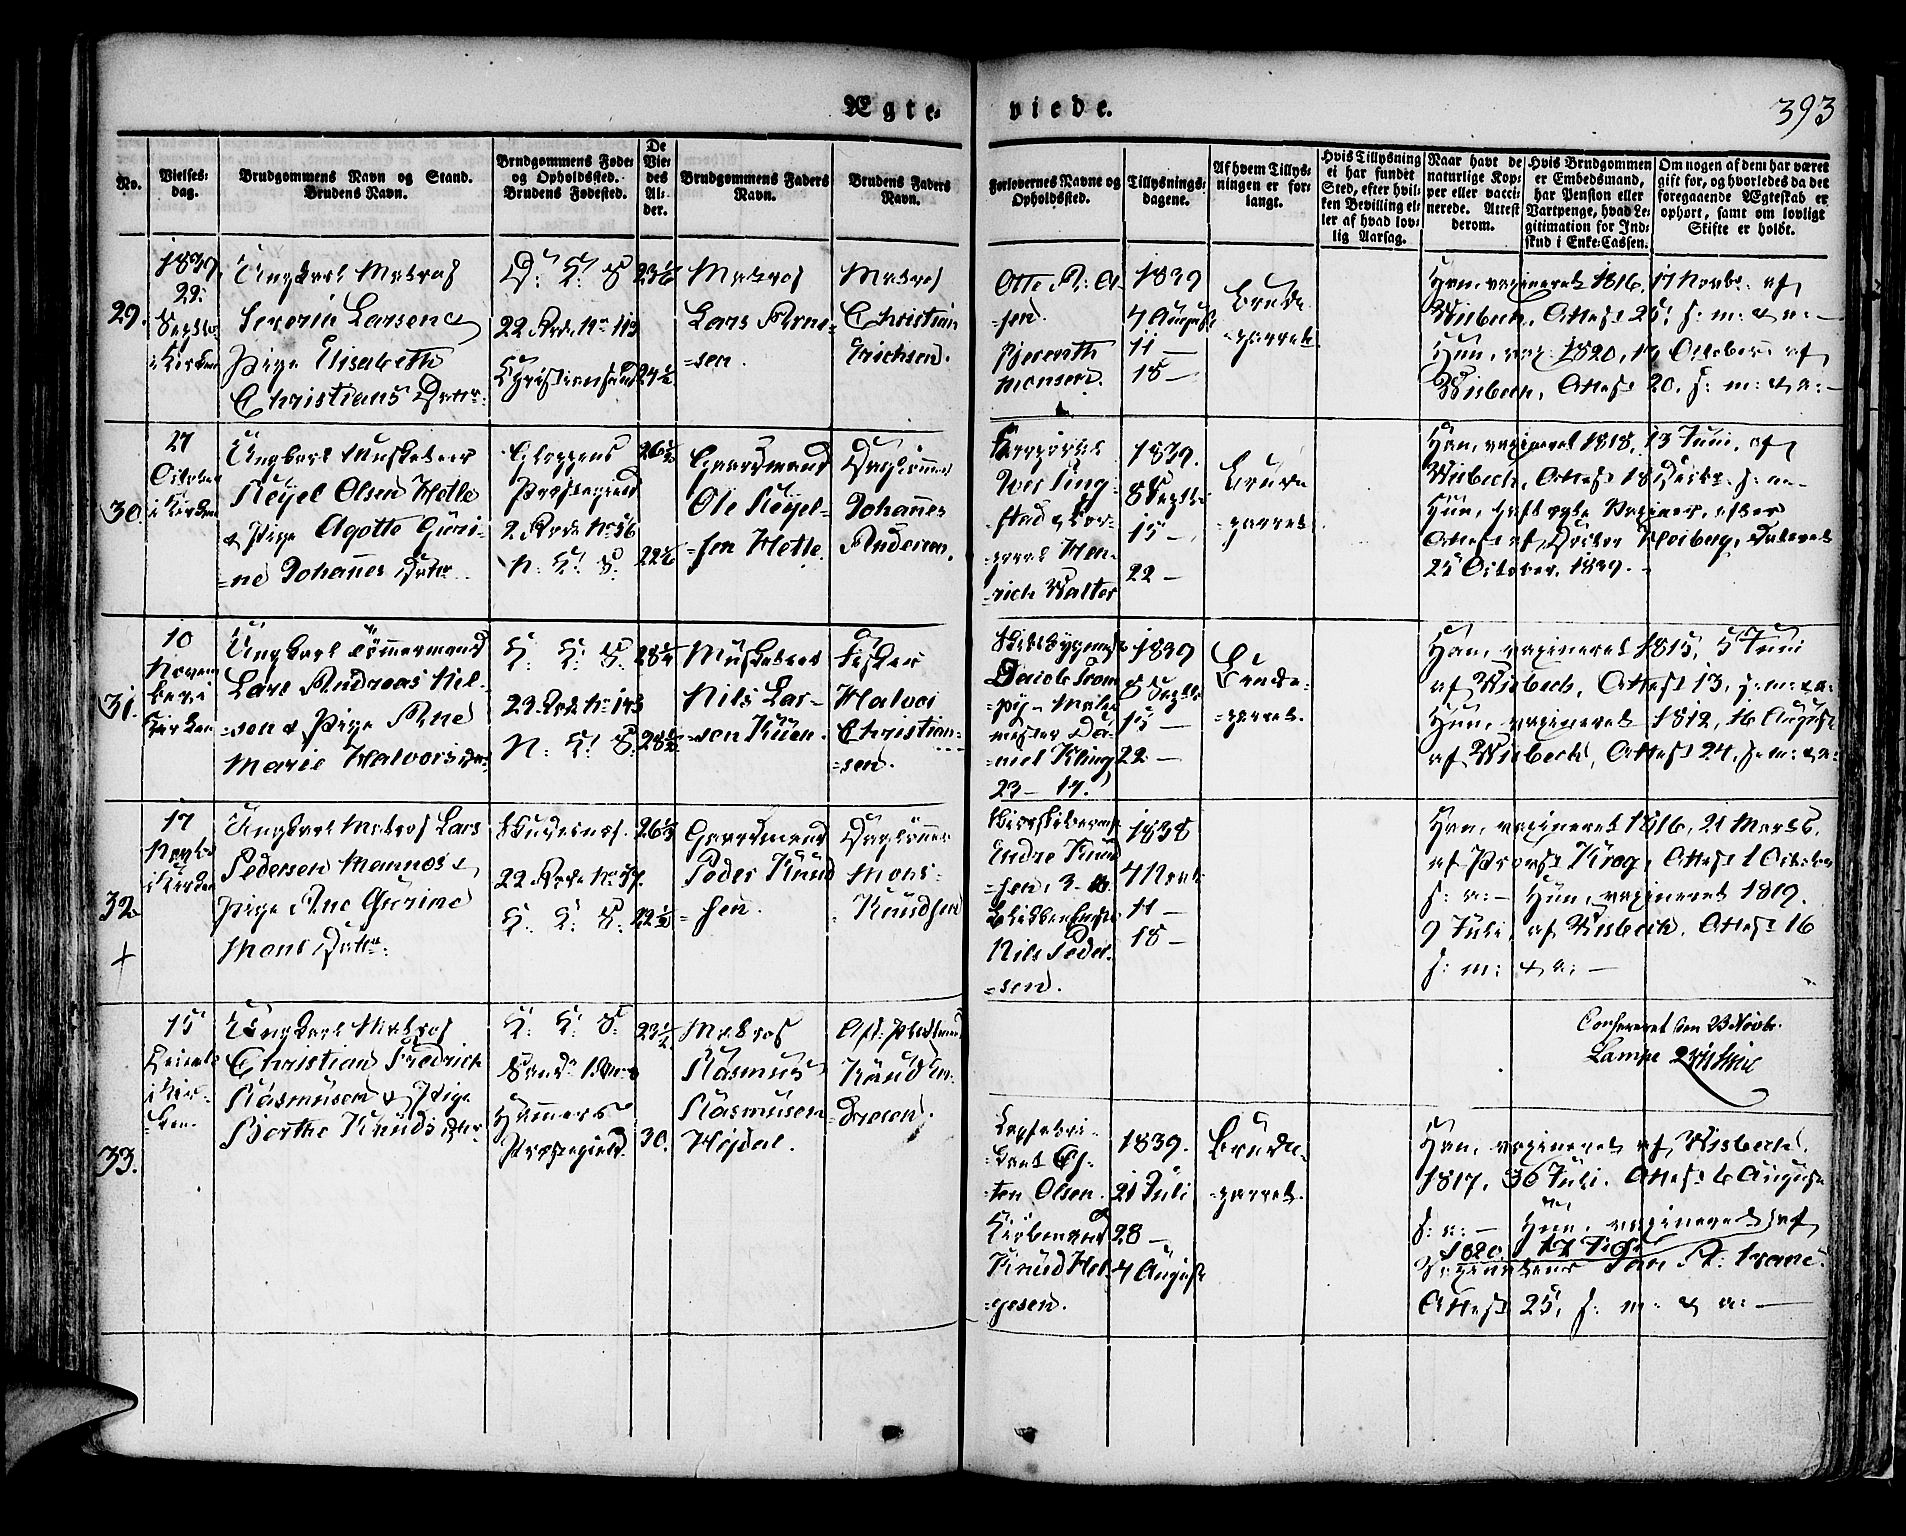 Ægte-
viede.
393
No.
Vielses-
dag.
Brudgommens Navn og Stand.
Brudens Navn.
Brudgommens Føde-
og Opholdssted.
Brudens Fødested.
De
Vie-
des
Al-
der.
Brudgommens Faders
Navn.
Brudens Faders
Navn.
Forlovernes Navne og
Opholdssted.
Tillysnings-
dagene.
Af hvem Tillys-
ningen er for-
langt.
Hvis Tillysning
ei har fundet
Sted, efter hvil-
ken Bevilling el-
ler af hvad lov-
lig Aarsag.
Naar havt de
naturlige Kop-
per eller vacci-
nerede. Attest
derom.
Hvis Brudgommen
er Embedsmand,
har Pension eller
Vartpenge, hvad Le-
gitimation for Ind-
skud i Enke-Cassen.
Om nogen af dem har været
gift før, og hvorledes da det
foregaaende Ægteskab er
ophørt, samt om lovligt
Skifte er holdt.
29.
1839
29:
Septbr
i Kirken
Ungkarl Matros
Severin Larsen &
Pige Elisabeth
Christians Datter.
D: K: S
22 Rode No 113
Christiansand
23½
24½
Matros
Lars Arne-
=sen.
Matros
Christian
Erichsen.
Otte
=sen.
Bjerenth
Monsen.
1839
4 August
11 —
18 —
Brude-
=parret.
Han, vaxineret 1816, 17 Novbr. af
Wisbech, Attest 25, s: m: & a: —
Hun, vax. 1820, 17 October af
Wisbech, Attest 20, s: m: & a: —
30.
27
October
i Kirken
Ungkarl Musketeer
Kejel Olsen Hetle
& Pige Agotte Guri-
=ne Johannes Datter.
Gloppens
Præstegield
2 Rode No 56
N: K: S:
26½
22½
Gaardmand
Ole Kejel-
=sen Hetle.
Daglønner
Johannes
Andersen.
=stad &
Hen-
=rich Walter
1839.
8 Septbr
15 —
22 —
Brude-
=parret.
Han, vaxineret 1818, 13 Juni, af
Wisbech, Attest 18
Hun, havt egte Vaxiner, efter
Attest af Doctor Heiberg, Dateret
25 October, 1839. —
31.
10
Novem-
ber i
Kirken
Ungkarl Tømmermand
Lars Andreas Nel-
=son & Pige Ane
Marie Halvors Dr.
K: K: S:
22 Rode No 143
N: K: S:
28½
28½
Musketeer
Nils Lar-
=sen Kuen.
Fisker
Halvor
Christian-
=sen.
Skibsbygger
Jacob Trom
=py — Maler
mester Da-
=niel Kling
23 — 17.
1839
8 Septbr
15 —
22 —
Brude-
=parret.
Han, vaxineret 1815, 5 Juni
af Wisbech, Attest 13, s: m: & a:
Hun, vaxineret 1812, 16 August
af Wisbech, Attest 24, s: m: & a:
32.
+
17
Novbr
i Kirken
Ungkarl Matros Lars
Pedersen Mannos &
Pige Ane Gurine
Mons Datter.
22 Rode No 57.
K: K: S:
26½
22½
Gaardmand
Peder Knud
=sen.
Daglønner
Mons
Knudsen
Endre Knud
=sen, 3-
Nils Peder-
=sen.
1838
4 Novbr
11 —
18 —
Han, vaxineret 1816, 21 Marts,
af Provst Krog, Attest 1 October
s: a: — Hun, vaxineret 1819.
9 Juli, af Wisbech, Attest 16
s: m: & a: —
33.
15
i Kir-
=ken
Ungkarl Matros
Christian Fredrich
Rasmusen & Pige
Berthe Knuds dtr.
K: K: S:
Hammers
Præstegield.
23½
30.
Matros
Rasmus
Rasmusen
Hejdal.
Knud An-
Confereret den 23 Novbr.
Lampe
=ten Olsen.
Kiøbmand
Knud Hel-
=gesen.
1839.
21 Juli
28 —
4 August
Brude-
=parret.
Han, vaxineret af Wisbech.
1817, 36 Juli. Attest 6 August
s: a: — Hun, vaxineret af
1820.
Attest 25, s: m: & a: —